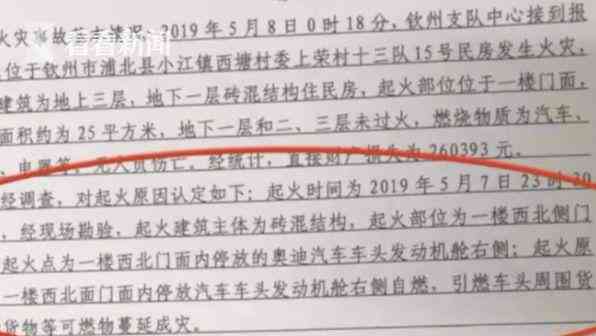 看看新闻
火灾事故基本情况：2019年5月8日0时18分，钦州支队中心接到报
位于钦州市浦北县小江镇西塘村委上荣村十三队15号民房发生火灾，
建筑为地上三层，地下一层砖混结构住民房，起火部位位于一楼门面，
面积约为25平方米，地下一层和二、三层未过火，燃烧物质为汽车、
、电器等，无人员伤亡。经统计，直接财产损失为260393元。
经调查，对起火原因认定如下：起火时间为2019年5月7日23时30
，经现场勘验，起火建筑主体为砖混结构，起火部位为一楼西北侧门
起火点为一楼西北门面内停放的奥迪汽车车头发动机舱右侧；起火原
一楼西北面门面内停放汽车车头发动机舱右侧自燃，引燃车头周围货
货物等可燃物蔓延成灾。